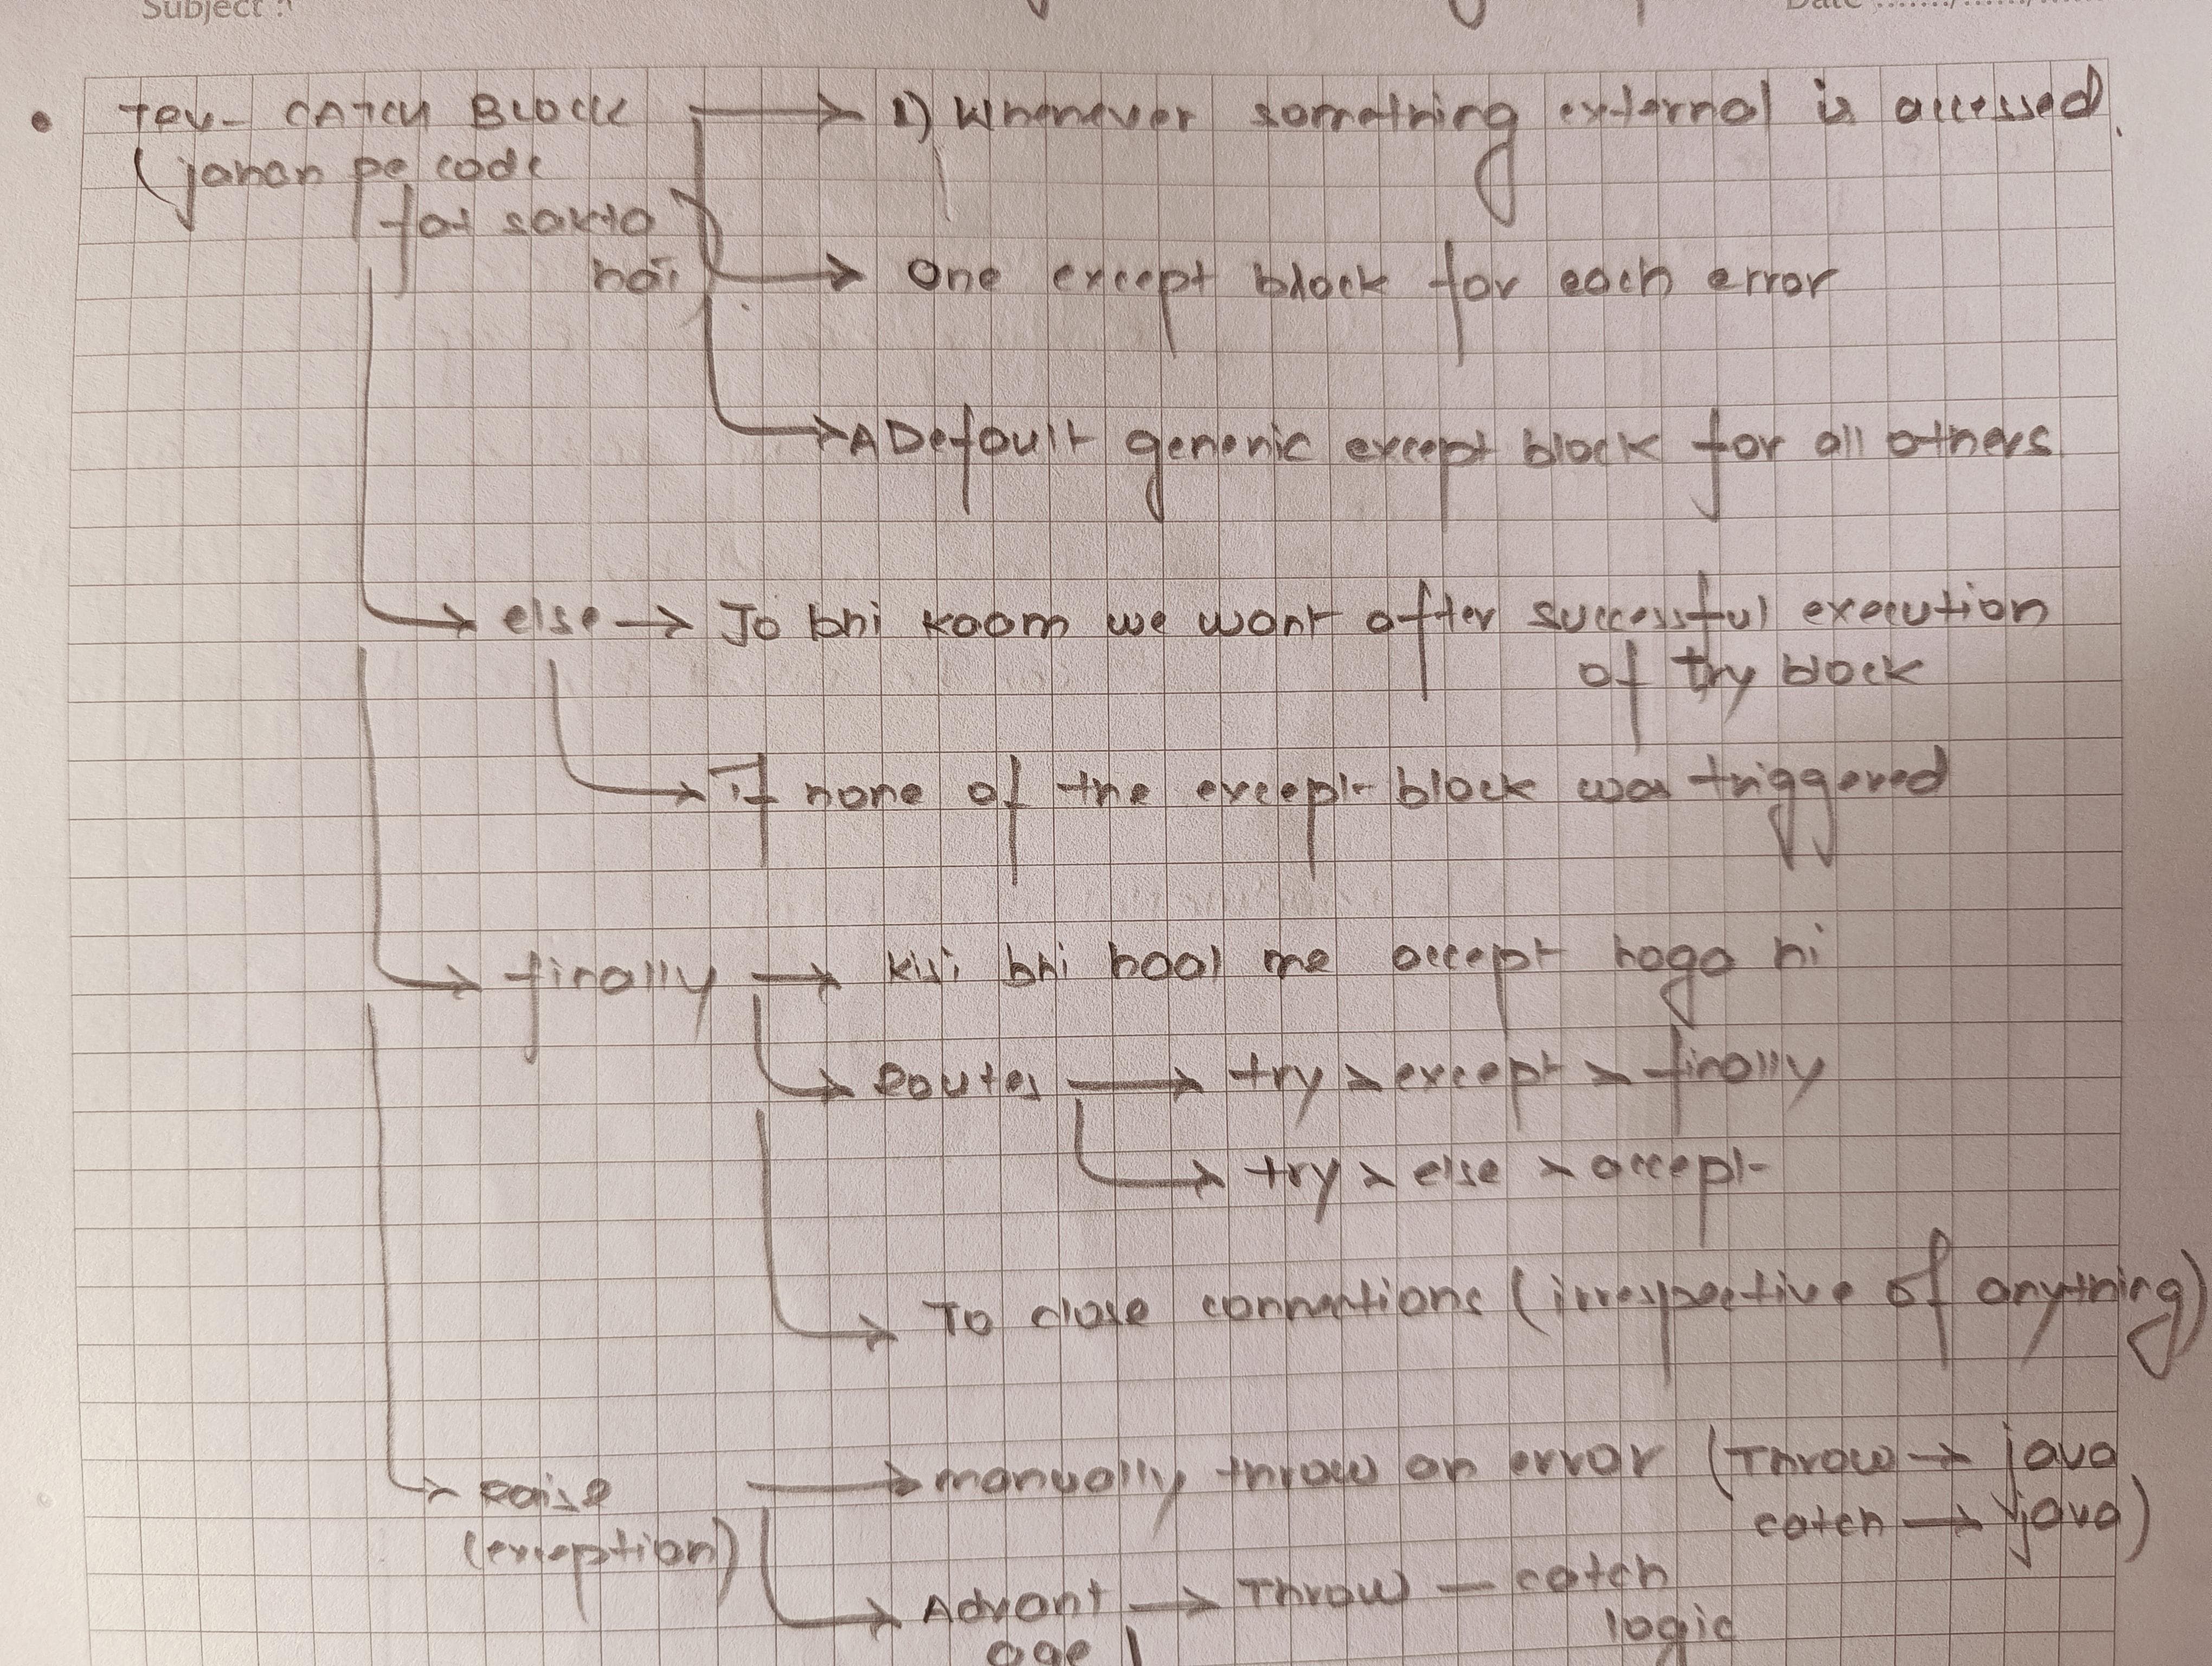 Subject :
Date ......./......./.......
• TRY- CATCH BLOCK → 1) Whenever something external is accessed.
(jahan pe code
fat sakta
hai
→ One except block for each error
→ A Default generic except block for all others
→ else → Jo bhi kaam we want after successful execution
of try block
→ If none of the except block was triggered
→ finally → kisi bhi haal me accept hoga hi
→ Routes → try > except > finally
→ try > else > accept
→ To close connections (irrespective of anything)
→ Raise → manually throw an error (Throw → java
(exception) catch → java)
→ Advant → Throw — catch
age logic